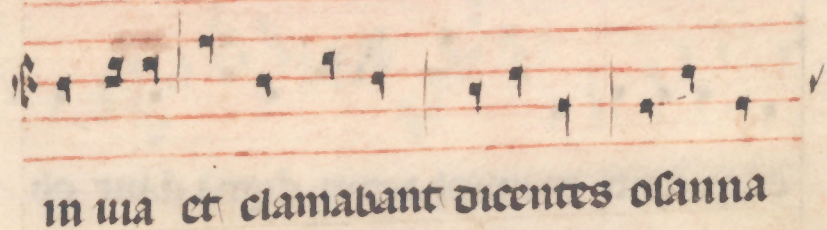 in uia et clamabant dicentes osanna